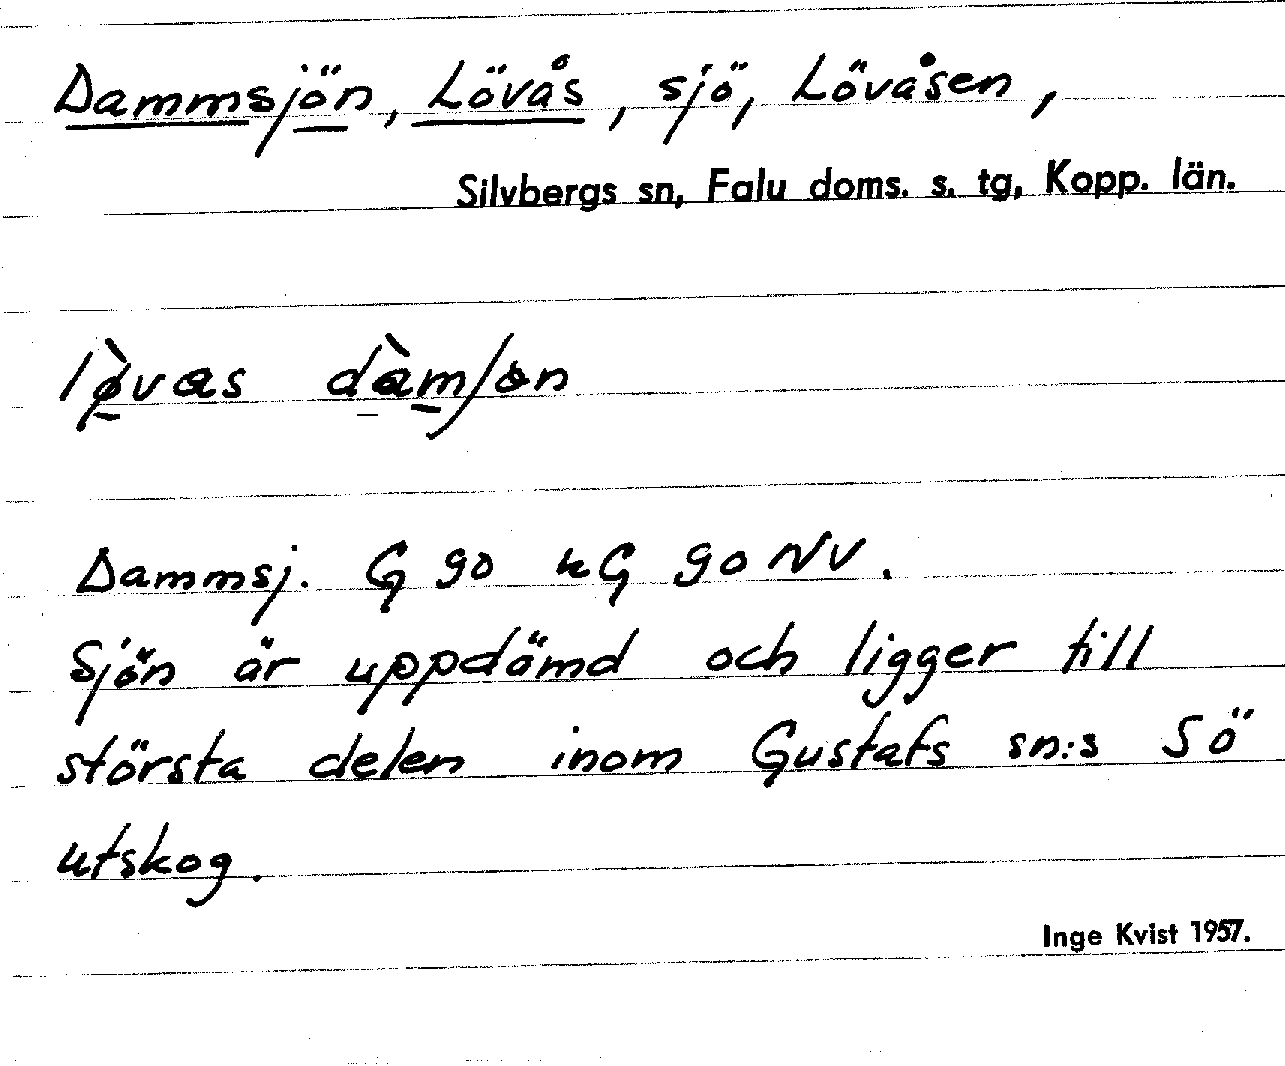 Dammsjön, Lövås, sjö, Lövåsen,
Silvbergs sn, Falu doms. s. tg, Kopp. län.
lø̀vas dàmʃøn
Dammsj. G 90 uG 90 NV.
Sjön är uppdämd och ligger till
största delen inom Gustafs sn:s SÖ
utskog.
Inge Kvist 1957.